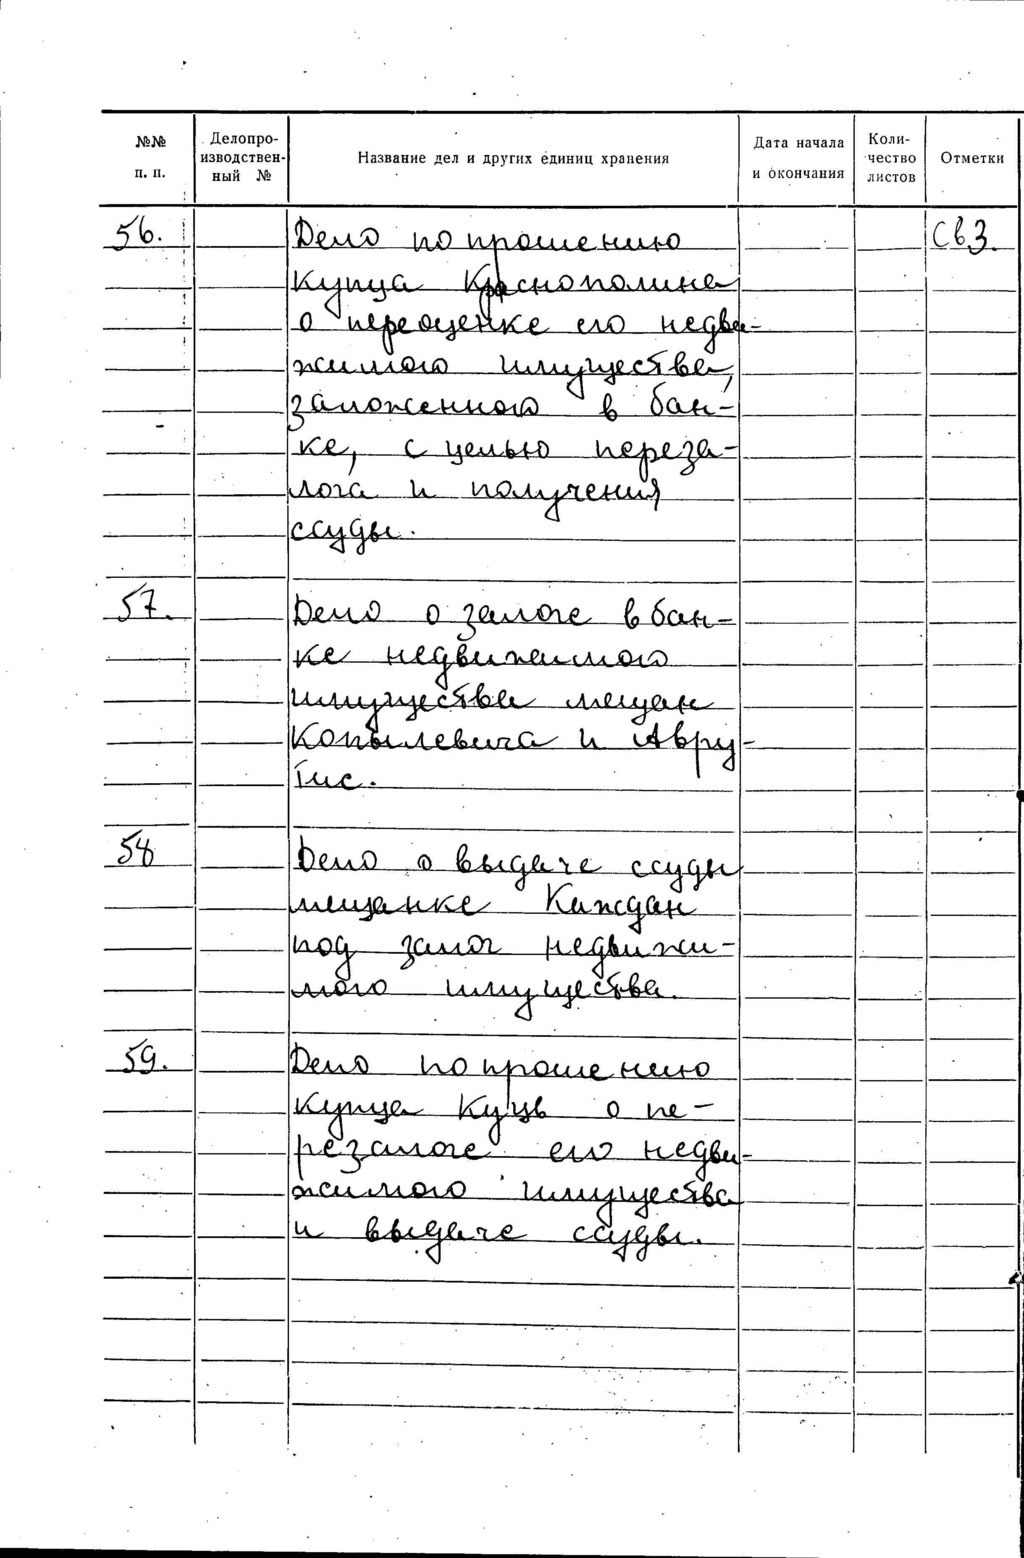 №№ п. п.
Делопро-
изводствен-
ный №
Название дел и других единиц хранения
Дата начала
и окончания
Коли-
чество
листов
Отметки
56. Дело по прошению св 3.
купца Краснополина
о переоценке его недви-
жимого имущества,
заложенного в бан-
ке, с целью переза-
лога и получения
ссуды.
57. Дело о залоге в бан-
ке недвижимого
имущества мещан
Копылевича и Авру-
тис.
58 Дело о выдаче ссуды
мещанке Каждан
под залог недвижи-
мого имущества.
59. Дело по прошению
купца Куцв о пе-
резалоге его недви-
жимого имущества
и выдаче ссуды.